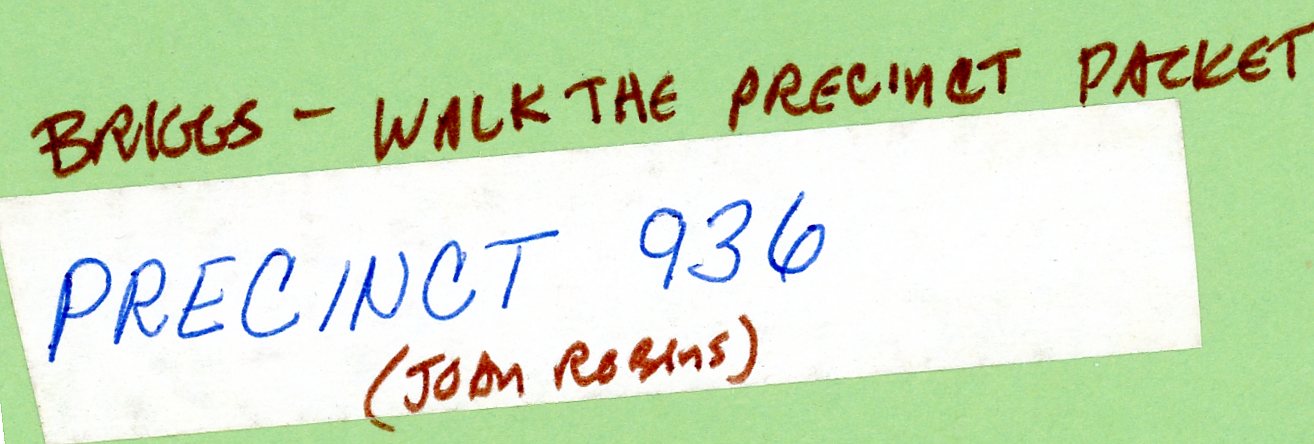 BRIGGS - WALK THE PRECINCT PACKET
PRECINCT 936
(JOAN ROBINS)